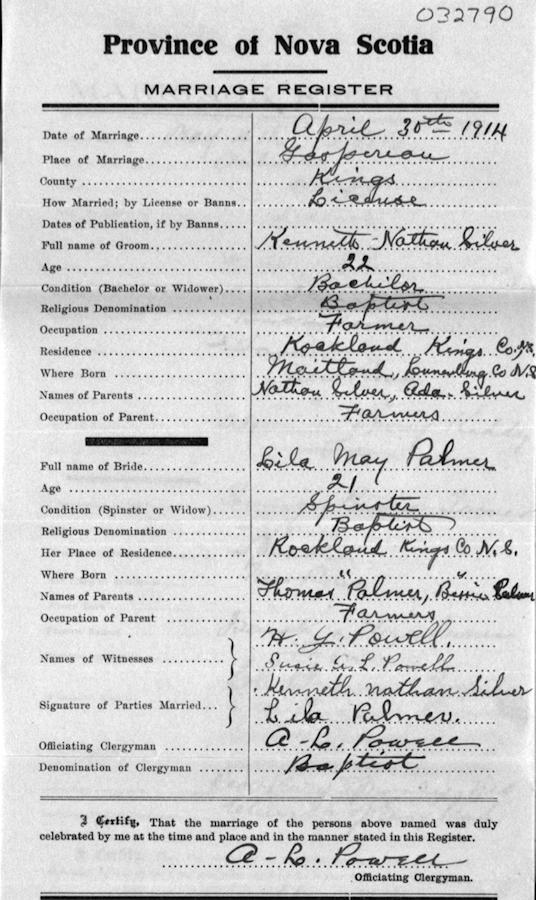 032790
Province of Nova Scotia
MARRIAGE REGISTER
Date of Marriage April 30th 1914
Place of Marriage Gaspereau
County Kings
How Married; by License or Banns License
Dates of Publication, if by Banns
Full name of Groom Kenneth Nathan Silver
Age 22
Condition (Bachelor or Widower) Bachilor
Religious Denomination Baptist
Occupation Farmer
Residence Rockland Kings Co. N.S.
Where Born Maitland, Lunenburg Co N.S
Names of Parents Nathan Silver, Ada Silver
Occupation of Parent Farmers
Full name of Bride Lila May Palmer
Age 21
Condition (Spinster or Widow) Spinster
Religious Denomination Baptist
Her Place of Residence Rockland Kings Co N.S.
Where Born " "
Names of Parents Thomas Palmer, Bessie Palmer
Occupation of Parent Farmers
Names of Witnesses H. Y. Powell.
Susie A. L. Powell
Signature of Parties Married Kenneth Nathan Silver
Lila Palmer.
Officiating Clergyman A-L. Powell
Denomination of Clergyman Baptist
I Certify, That the marriage of the persons above named was duly
celebrated by me at the time and place and in the manner stated in this Register.
A-L. Powell
Officiating Clergyman.